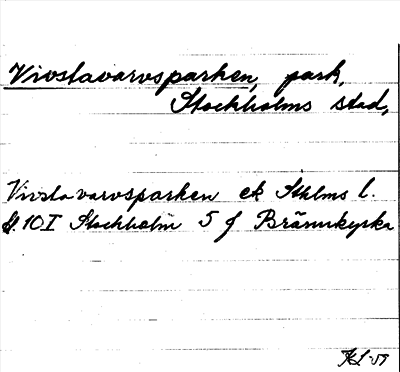 Vivstavarvsparken, park,
Stockholms stad,
Vivstavarvsparken ek Sthlms l.
10I Stockholm 5 f Brännkyrka